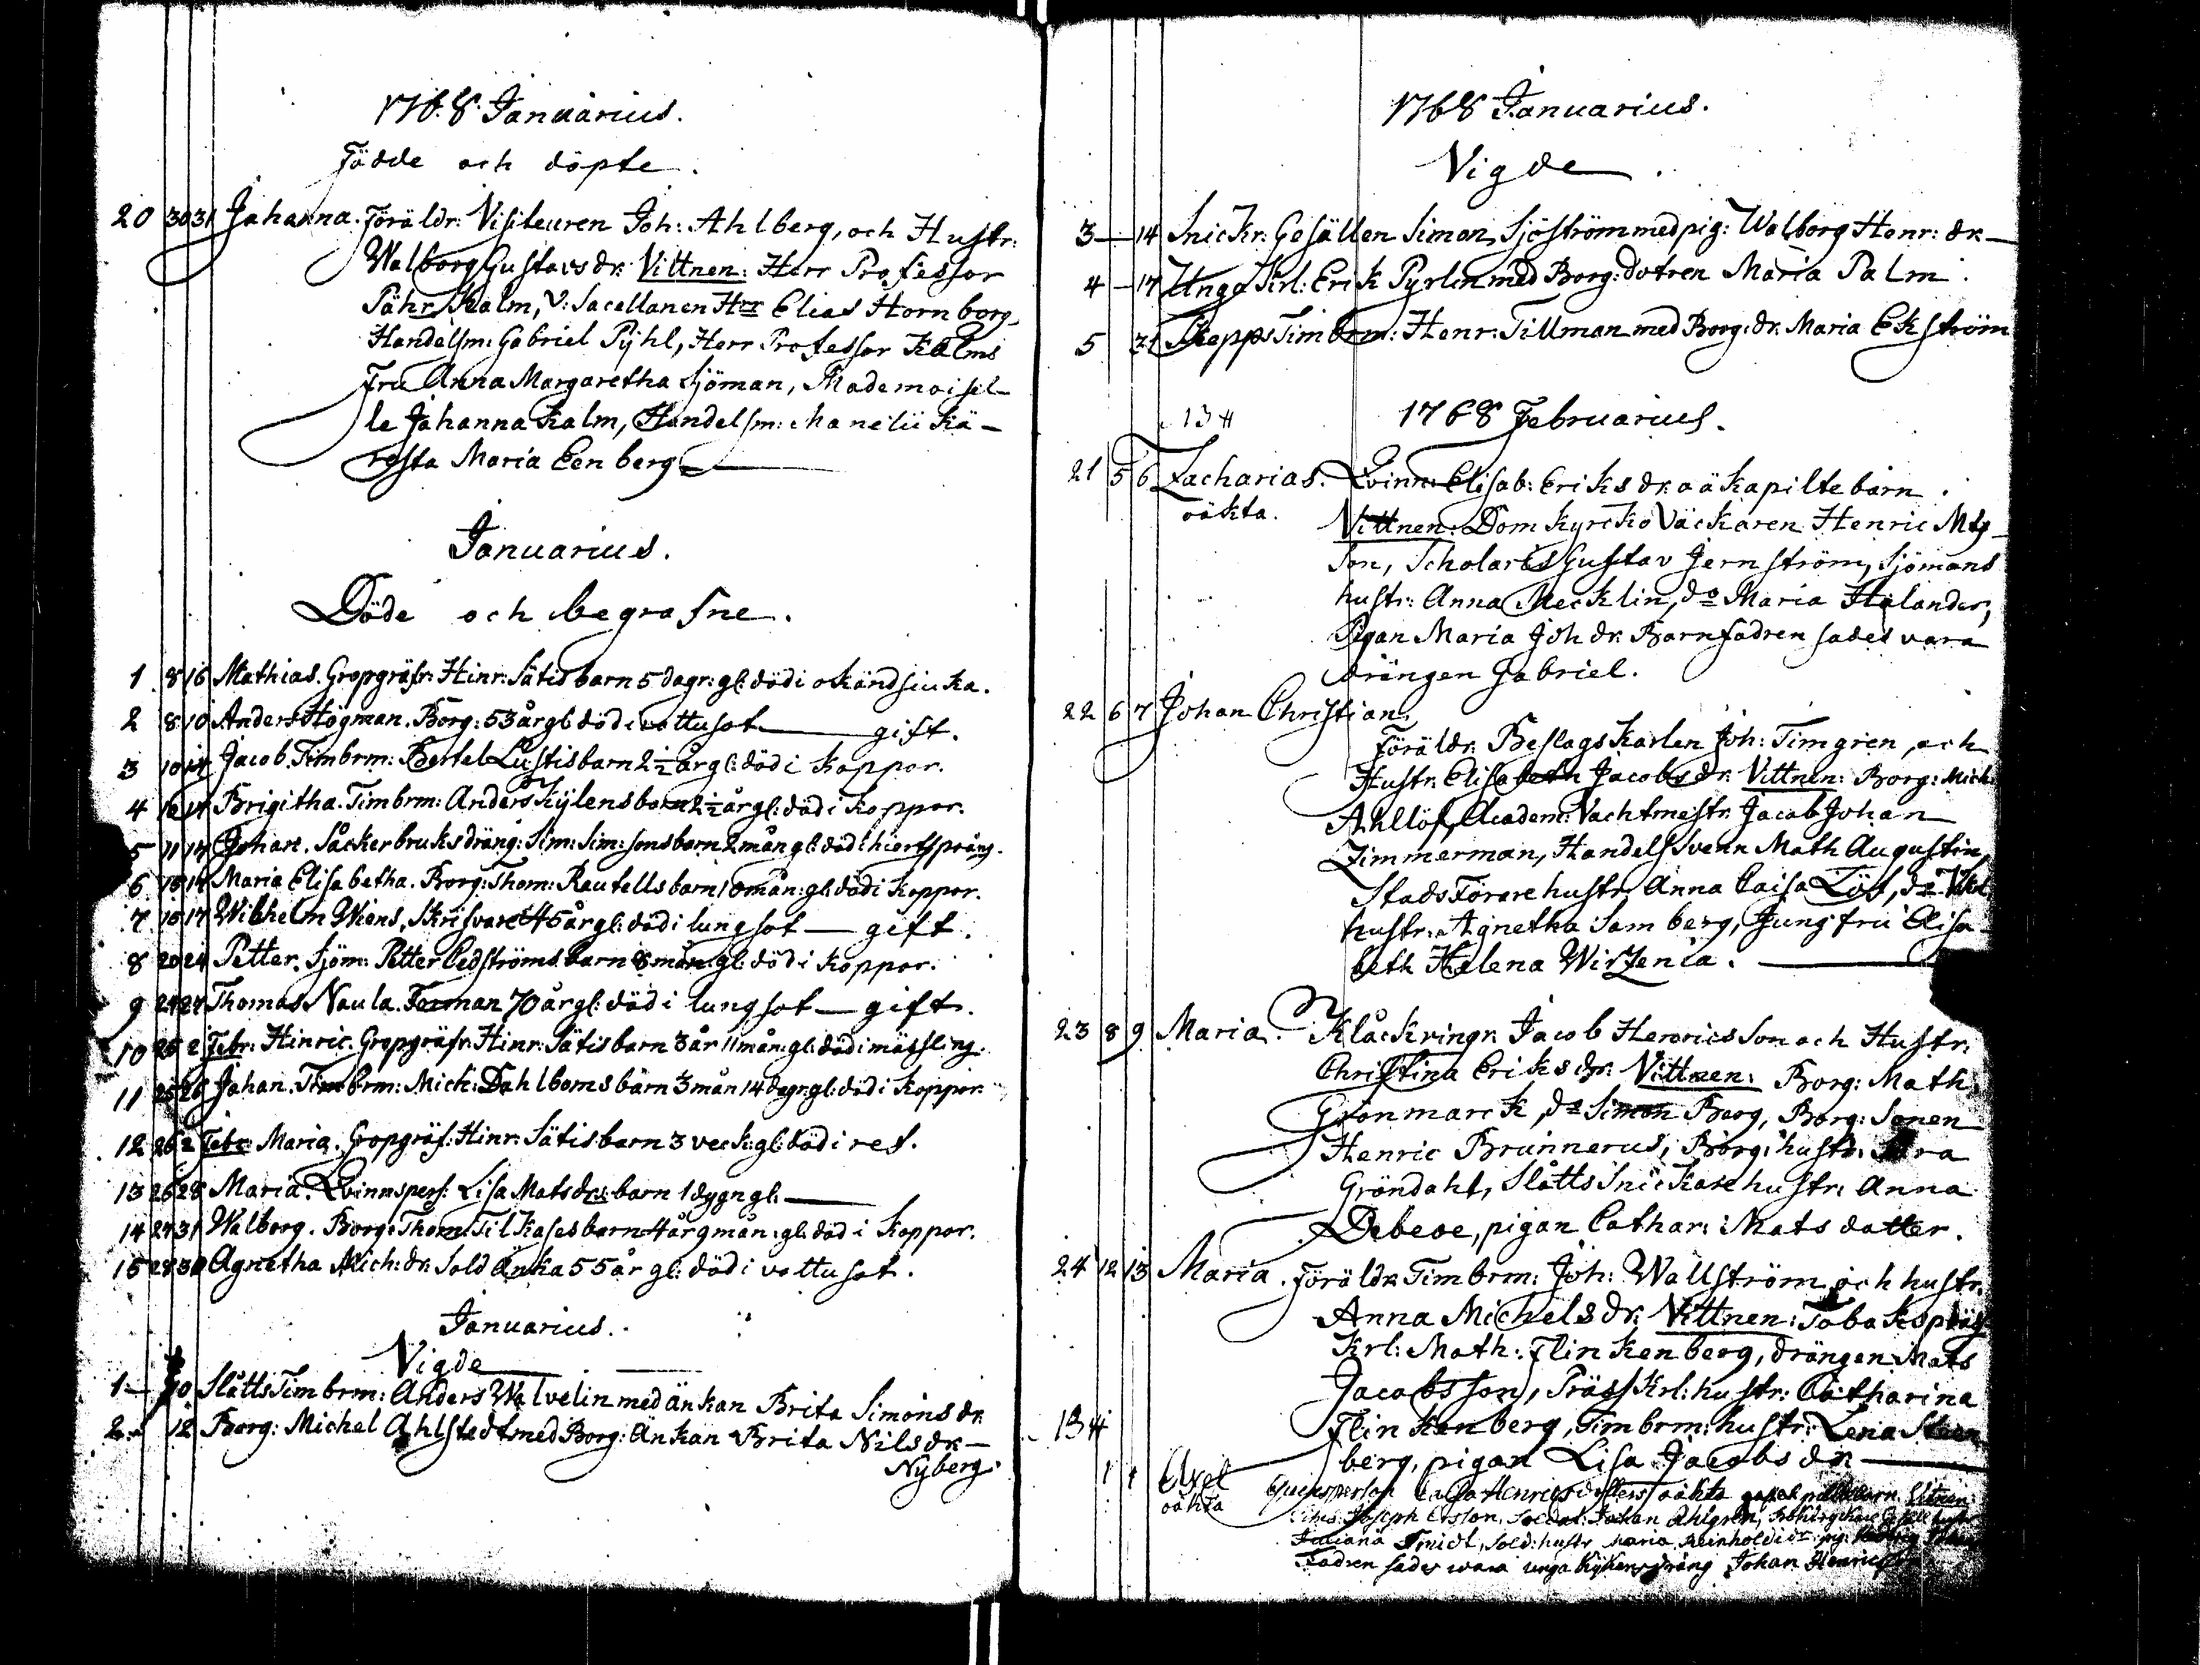 1768 Januarius.
Födde och döpte.
20 30 31 Johanna. Föräldr: Visiteuren Joh: Ahlberg, och Hustr:
Walborg Gustavsdr. Vittnen: Herr Professor
Pähr Kalm, V: Sacellanen Hrr Elias Hornborg,
Handelsm: Gabriel Pÿhl, Herr Professor Kalms
Fru Anna Margaretha Sjöman, Mademoisel-
le Johanna Kalm, Handelsm: kä-
resta Maria Eenberg
Januarius.
Döde och begrafne.
1 8 16 Mathias. Gropgräfr: Hinr: Sätis barn 5 dagr: gl: död i okänd siuka.
2 8 10 Anders Högman. Borg: 53 år gl: död i vattusot gift.
3 10 14 Jacob. Timbrm: Bertel Lustis barn 2 1/2 år gl: död i koppor.
4 10 14 Brigitha. Timbrm: Anders Kÿlens barn 2 1/2 år gl: död i koppor.
5 11 14 Johan. Såckerbruksdräng: Sim: Sim:sons barn 2 mån gl: död i hiertsprång.
6 15 17 Maria Elisabetha. Borg: Thom: Rautells barn 10 mån: gl: död i koppor.
7 15 17 Wilhelm Wiens, Skrifvare 45 år gl: död i lungsot gift.
8 20 24 Petter. Sjöm: Petter Cedströms barn 8 mån: gl: död i koppor.
9 24 27 Thomas Naula. Forman 70 år gl: död i lungsot gift.
10 25 2 Febr: Hinric. Gropgräfr: Hinr: Sätis barn 3 år 11 mån: gl: död i mässling.
11 25 28 Johan. Timbrm: Mich: Dahlboms barn 3 mån 14 dagr: gl: död i koppor.
12 26 2 Febr: Maria. Gropgräf: Hinr: Sätis barn 3 veck: gl: död i ref.
13 26 28 Maria. Qvinnspers: Lisa Matsdrs: barn 1 dygn gl:
14 27 31 Walborg. Borg: Thom: Tilkases barn 4 år 9 mån: gl: död i koppor.
15 28 30 Agnetha Mich:dr. Sold Änka 55 år gl: död i vattusot.
Januarius.
Vigde
1 10 Slåtts Timbrm: Anders Walvelin med änkan Brita Simonsdr
2 12 Borg: Michel Ahlstedt med Borg: Änkan Brita Nilsdr
Nyberg.
1768 Januarius.
Vigde.
3 14 Snickr: Gesällen Simon Sjöström med pig: Walborg Henr: dr
4 17 Unge Krl: Erik Pyrlin med Borg: dotren Maria Palm.
5 31 Skepps Timbrm: Henr: Tillman med Borg: dr. Maria Ekström
134 1768 Februarius.
21 5 6 Zacharias. Qvinn: Elisab: Eriksdr. oäkta piltebarn.
oäkta. Vittnen: Domkyrcko Väckaren Henric Mts
son, Scholaris Gustav Jernström, Sjömans
hustr: Anna Mecklin, do Maria Helander,
Pigan Maria Joh dr. Barnfadren sades vara
drängen Gabriel.
22 6 7 Johan Christian.
Föräldr. Beslags Karlen Joh: Timgren, och
Hustr. Elisabeth Jacobsdr. Vittnen: Borg: Mich:
Ahllöf, Academ: Vachtmestr. Jacob Johan
Zimmerman, Handels Svenn Math Augustin,
Stads Förare hustr. Anna Caisa Löf, do
hustr: Agnetha Samberg, Jungfru Elisa-
beth Helena Wirzenia.
23 8 9 Maria. Klåckringr. Jacob Henrics Son och Hustr:
Christina Eriksdr. Vittnen: Borg: Math:
Grönmarck, do Simon Berg, Borg: Sonen
Henric Brunnerus, Borg: hustr: Sara
Gröndahl, Slåtts Snickare hustr. Anna
Debeve, pigan Cathar: Mats dotter.
24 12 13 Maria. Föräldr. Timbrm: Joh: Wallström och hustr.
Anna Michelsdr. Vittnen: Tobakspräs
Krl: Math: Flinkenberg, drängen Mats
Jacobsson, Präss Krl: hustr: Catharina
Flinkenberg, Timbrm: hustr: Lena Steen
134 berg, pigan Lisa Jacobsdr.
Axel Qvinsperson Henricsdotters oäkta
oäkta Joseph Ersson, Soldat: Johan Ahlgren,
Juliana Smidt, Sold: hustr Maria Reinholdi
Fadren sades wara unga drång Johan Henrics